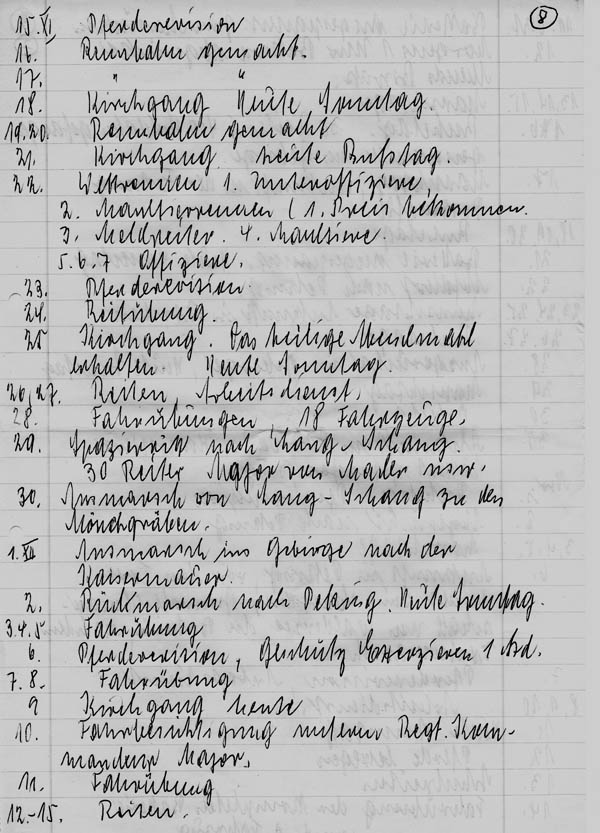 8
15. XI. Pferderevision
16. Rennbahn gemacht.
17. " "
18. Kirchgang Heute Sonntag.
19.20. Rennbahn gemacht
21. Kirchgang heute Bußtag.
22. Wettrennen 1. Unteroffiziere,
2. Maultierrennen (1. Preis bekommen.
3. Meldreiter. 4. Maultiere.
5.6.7 Offiziere.
23. Pferderevision.
24. Reitübung.
25 Kirchgang. Das heilige Abendmahl
erhalten. Heute Sonntag.
26,27. Reiten, Arbeitsdienst.
28. Fahrübungen, 18 Fahrzeuge.
29. Spazierritt nach Schang.
30 Reiter Major von usw.
30. Ausmarsch von Schang zu den
Mönchgräben.
1. XII Ausmarsch ins Gebirge nach der
Kaisermauer.
2. Rückmarsch nach Peking. Heute Sonntag.
3.4.5 Fahrübung
6. Pferderevision, Geschütz Exerzieren 1
7.8. Fahrübung
9 Kirchgang heute
10. Fahrbesichtigung unseren Regt. Kom-
mandeur Major,
11. Fahrübung
12.-15. Reiten.